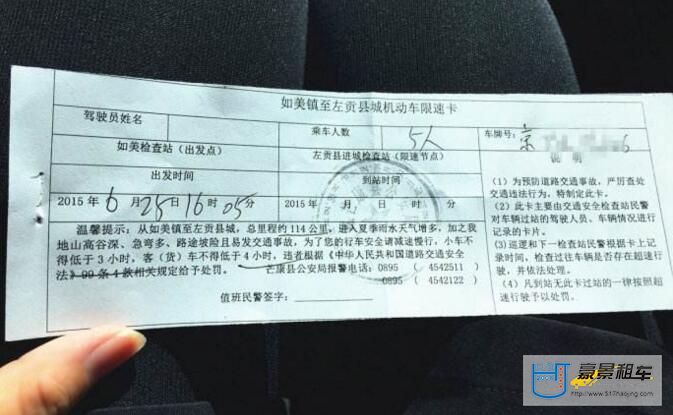 如美镇至左贡县城机动车限速卡
驾驶员姓名
乘车人数 5人
车牌号: 京 6
如美检查站（出发点）
左贡县进城检查站（限速节点）
出发时间
到站时间
2015 年 6 月 25 日 16 时 05 分
2015 年 月 日 时 分
温馨提示：从如美镇至左贡县城，总里程约 114 公里，进入夏季雨水天气增多、加之我
地山高谷深、急弯多、路途坡险且易发交通事故，为了您的行车安全请减速慢行，小车不
得低于 3 小时，客（货）车不得低于 4 小时，违者根据《中华人民共和国道路交通安全
法》99 条 4 款相关规定给予处罚。
芒康县公安局报警电话：0895 （ 4542511 ）
0895 （ 4542122 ）
值班民警签字：
说 明
（1）为预防道路交通事故，严厉查处
交通违法行为，特制定此卡。
（2）此卡主要由交通安全检查站民警
对车辆过站的驾驶人员、车辆情况进行
记录的卡片。
（3）巡逻和下一检查站民警根据卡上记
录时间，检查过往车辆是否存在超速行
驶，并依法处理。
（4）凡到站无此卡过站的一律按照超
速行驶予以处罚。
豪景租车
www.517haojing.com